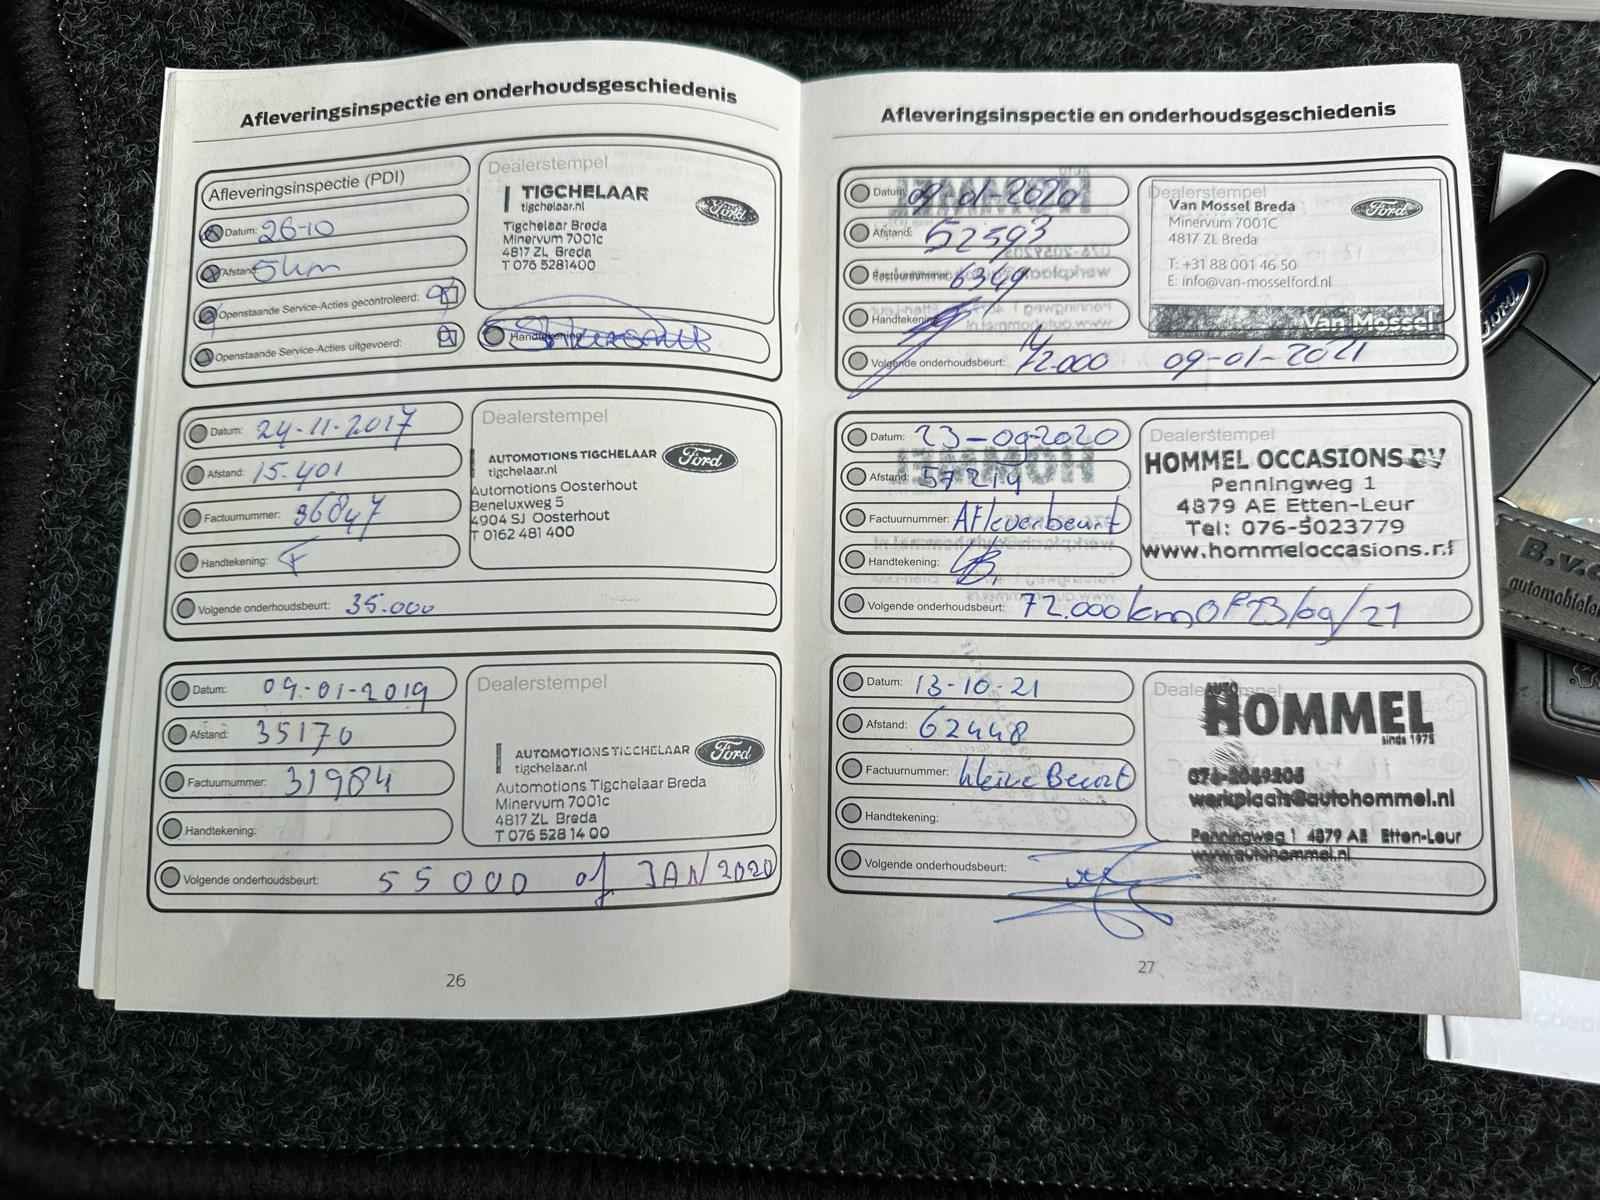 Afleveringsinspectie en onderhoudsgeschiedenis
Afleveringsinspectie (PDI)
Datum: 26-10
Afstand: 5 km
Openstaande Service-Acties gecontroleerd:
Openstaande Service-Acties uitgevoerd:
Dealerstempel
TIGCHELAAR
tigchelaar.nl
Ford
Tigchelaar Breda
Minervum 7001c
4817 ZL Breda
T 076 5281400
Handtekening:
Datum: 24-11-2017
Afstand: 15.401
Factuurnummer: 36847
Handtekening:
Volgende onderhoudsbeurt: 35.000
Dealerstempel
AUTOMOTIONS TIGCHELAAR
tigchelaar.nl
Ford
Automotions Oosterhout
Beneluxweg 5
4904 SJ Oosterhout
T 0162 481 400
Datum: 09-01-2019
Afstand: 35170
Factuurnummer: 31984
Handtekening:
Volgende onderhoudsbeurt: 55000 of JAN 2020
Dealerstempel
AUTOMOTIONS TIGCHELAAR
tigchelaar.nl
Ford
Automotions Tigchelaar Breda
Minervum 7001c
4817 ZL Breda
T 076 528 14 00
26
Afleveringsinspectie en onderhoudsgeschiedenis
Datum: 09-01-2020
Afstand: 52593
Factuurnummer: 6349
Handtekening:
Volgende onderhoudsbeurt: 72.000 09-01-2021
Dealerstempel
Van Mossel Breda
Minervum 7001C
4817 ZL Breda
Ford
T: +31 88 001 46 50
E: info@van-mosselford.nl
Van Mossel
Datum: 23-09-2020
Afstand: 57214
Factuurnummer: Afleverbeurt
Handtekening:
Volgende onderhoudsbeurt: 72.000 km OF 23/09/21
Dealerstempel
HOMMEL OCCASIONS BV
Penningweg 1
4879 AE Etten-Leur
Tel: 076-5023779
www.hommeloccasions.nl
Datum: 13-10-21
Afstand: 62448
Factuurnummer: kleine Beurt
Handtekening:
Volgende onderhoudsbeurt:
Dealerstempel
AUTO
HOMMEL
sinds 1975
werkplaats@autohommel.nl
Penningweg 1 4879 AE Etten-Leur
www.autohommel.nl
27
Ford
B.v.
automobielen